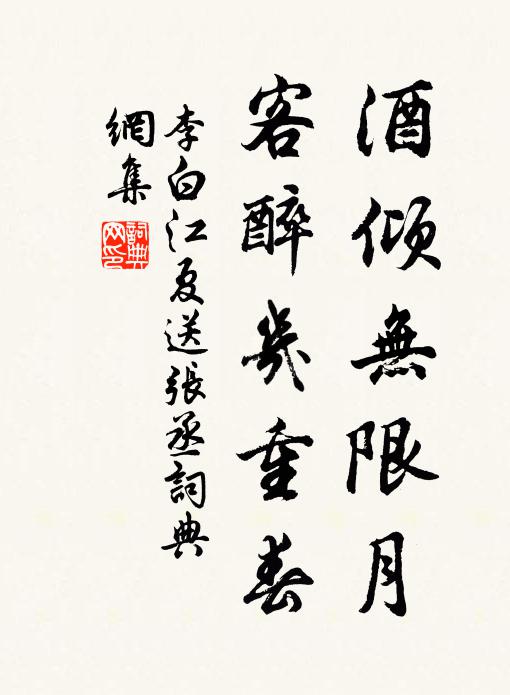 酒傾無限月
客醉幾重春
李白江夏送張丞詞典
網集
詞典
网印